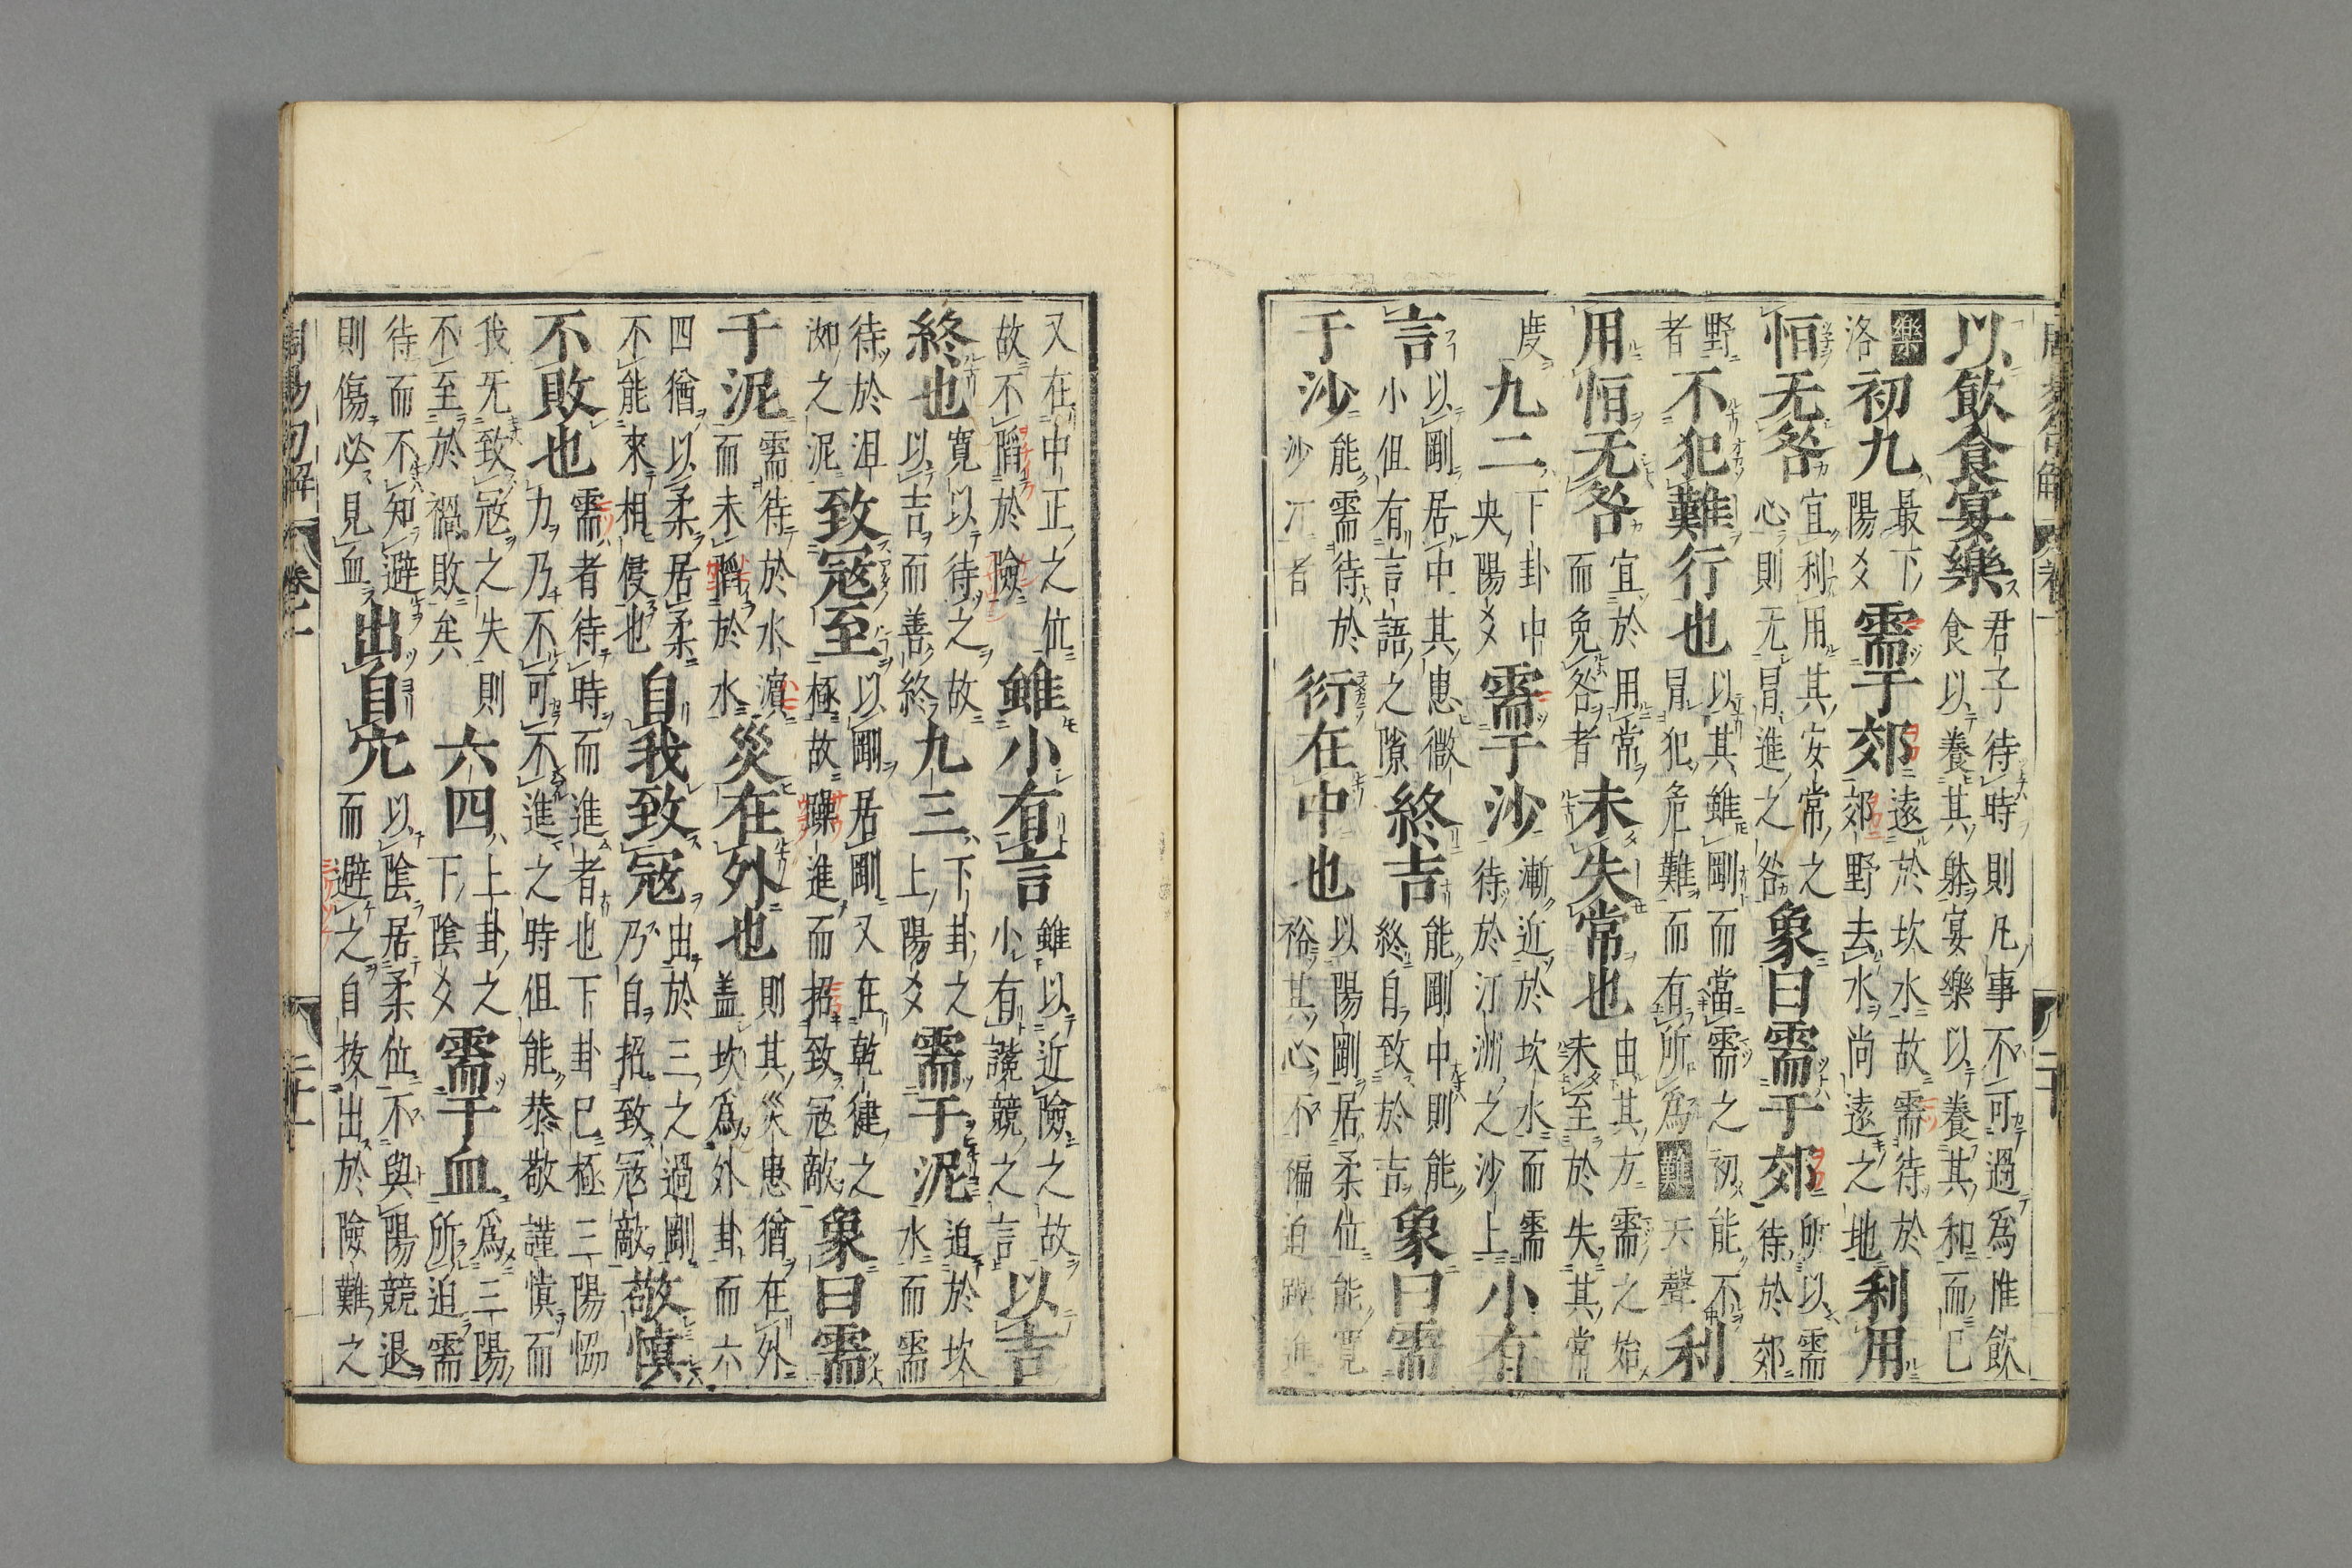 以飲食宴樂君子待時則凡事不可過為惟飲食以養其躰宴樂以養其和而已
樂洛初九最下陽爻需于郊遠於坎水故需待於郊野去水尚遠之地利用
恒无咎宜利用其安常之心則无冒進之咎象曰需于郊所以需待於郊
野者不犯難行也以其雖剛而當需之初能不冒犯危難而有所為難天聲利
用恒无咎宜於用常而免咎者未失常也由其方需之始未至於失其常
度九二下卦中央陽爻需于沙漸近於坎水而需待於汀洲之沙上小有
言以剛居中其患微小但有言語之隙終吉能剛中則能終自致於吉象曰需
于沙能需待於沙汀者衍在中也以陽剛居柔位能寛裕其心不褊迫躁進
又在中正之位故不䧟於險雖小有言雖以近險之故小有譊競之言以吉
終也寛以待之故以吉而善終九三下卦之上陽爻需于泥迫於坎水而需
待於沮洳之泥致冦至以剛居剛又在乾健之極故躁進而招致冦敵象曰需
于泥需待於水濵而未䧟於水災在外也則其災患猶在外盖坎為外卦而六
四猶以柔居柔不能來相侵也自我致冦由於三之過剛乃自招致冦敵敬慎
不敗也需者待時而進者也下卦巳極三陽恊力乃不可不進之時但能恭敬謹慎而
我旡致冦之失則不至於禍敗矣六四上卦之下陰爻需于血為三陽所迫需
待而不知避則傷必見血出自穴以陰居柔位不與陽競退而避之自抜出於險難之
周易句解 卷一 二十一